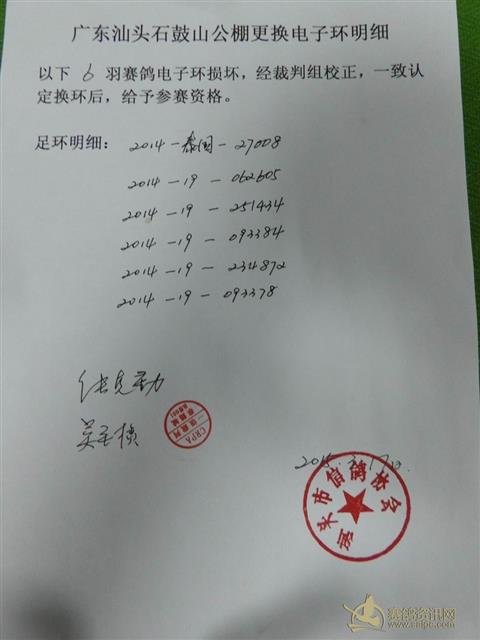 广东汕头石鼓山公棚更换电子环明细
以下 6 羽赛鸽电子环损坏，经裁判组校正，一致认
定换环后，给予参赛资格。
足环明细：2014－泰国－27008
2014－19－062605
2014－19－251434
2014－19－093384
2014－19－234872
2014－19－093378
CRPA
2015.3.17日
汕头市信鸽协会
赛鸽资讯网
www.cnipc.com